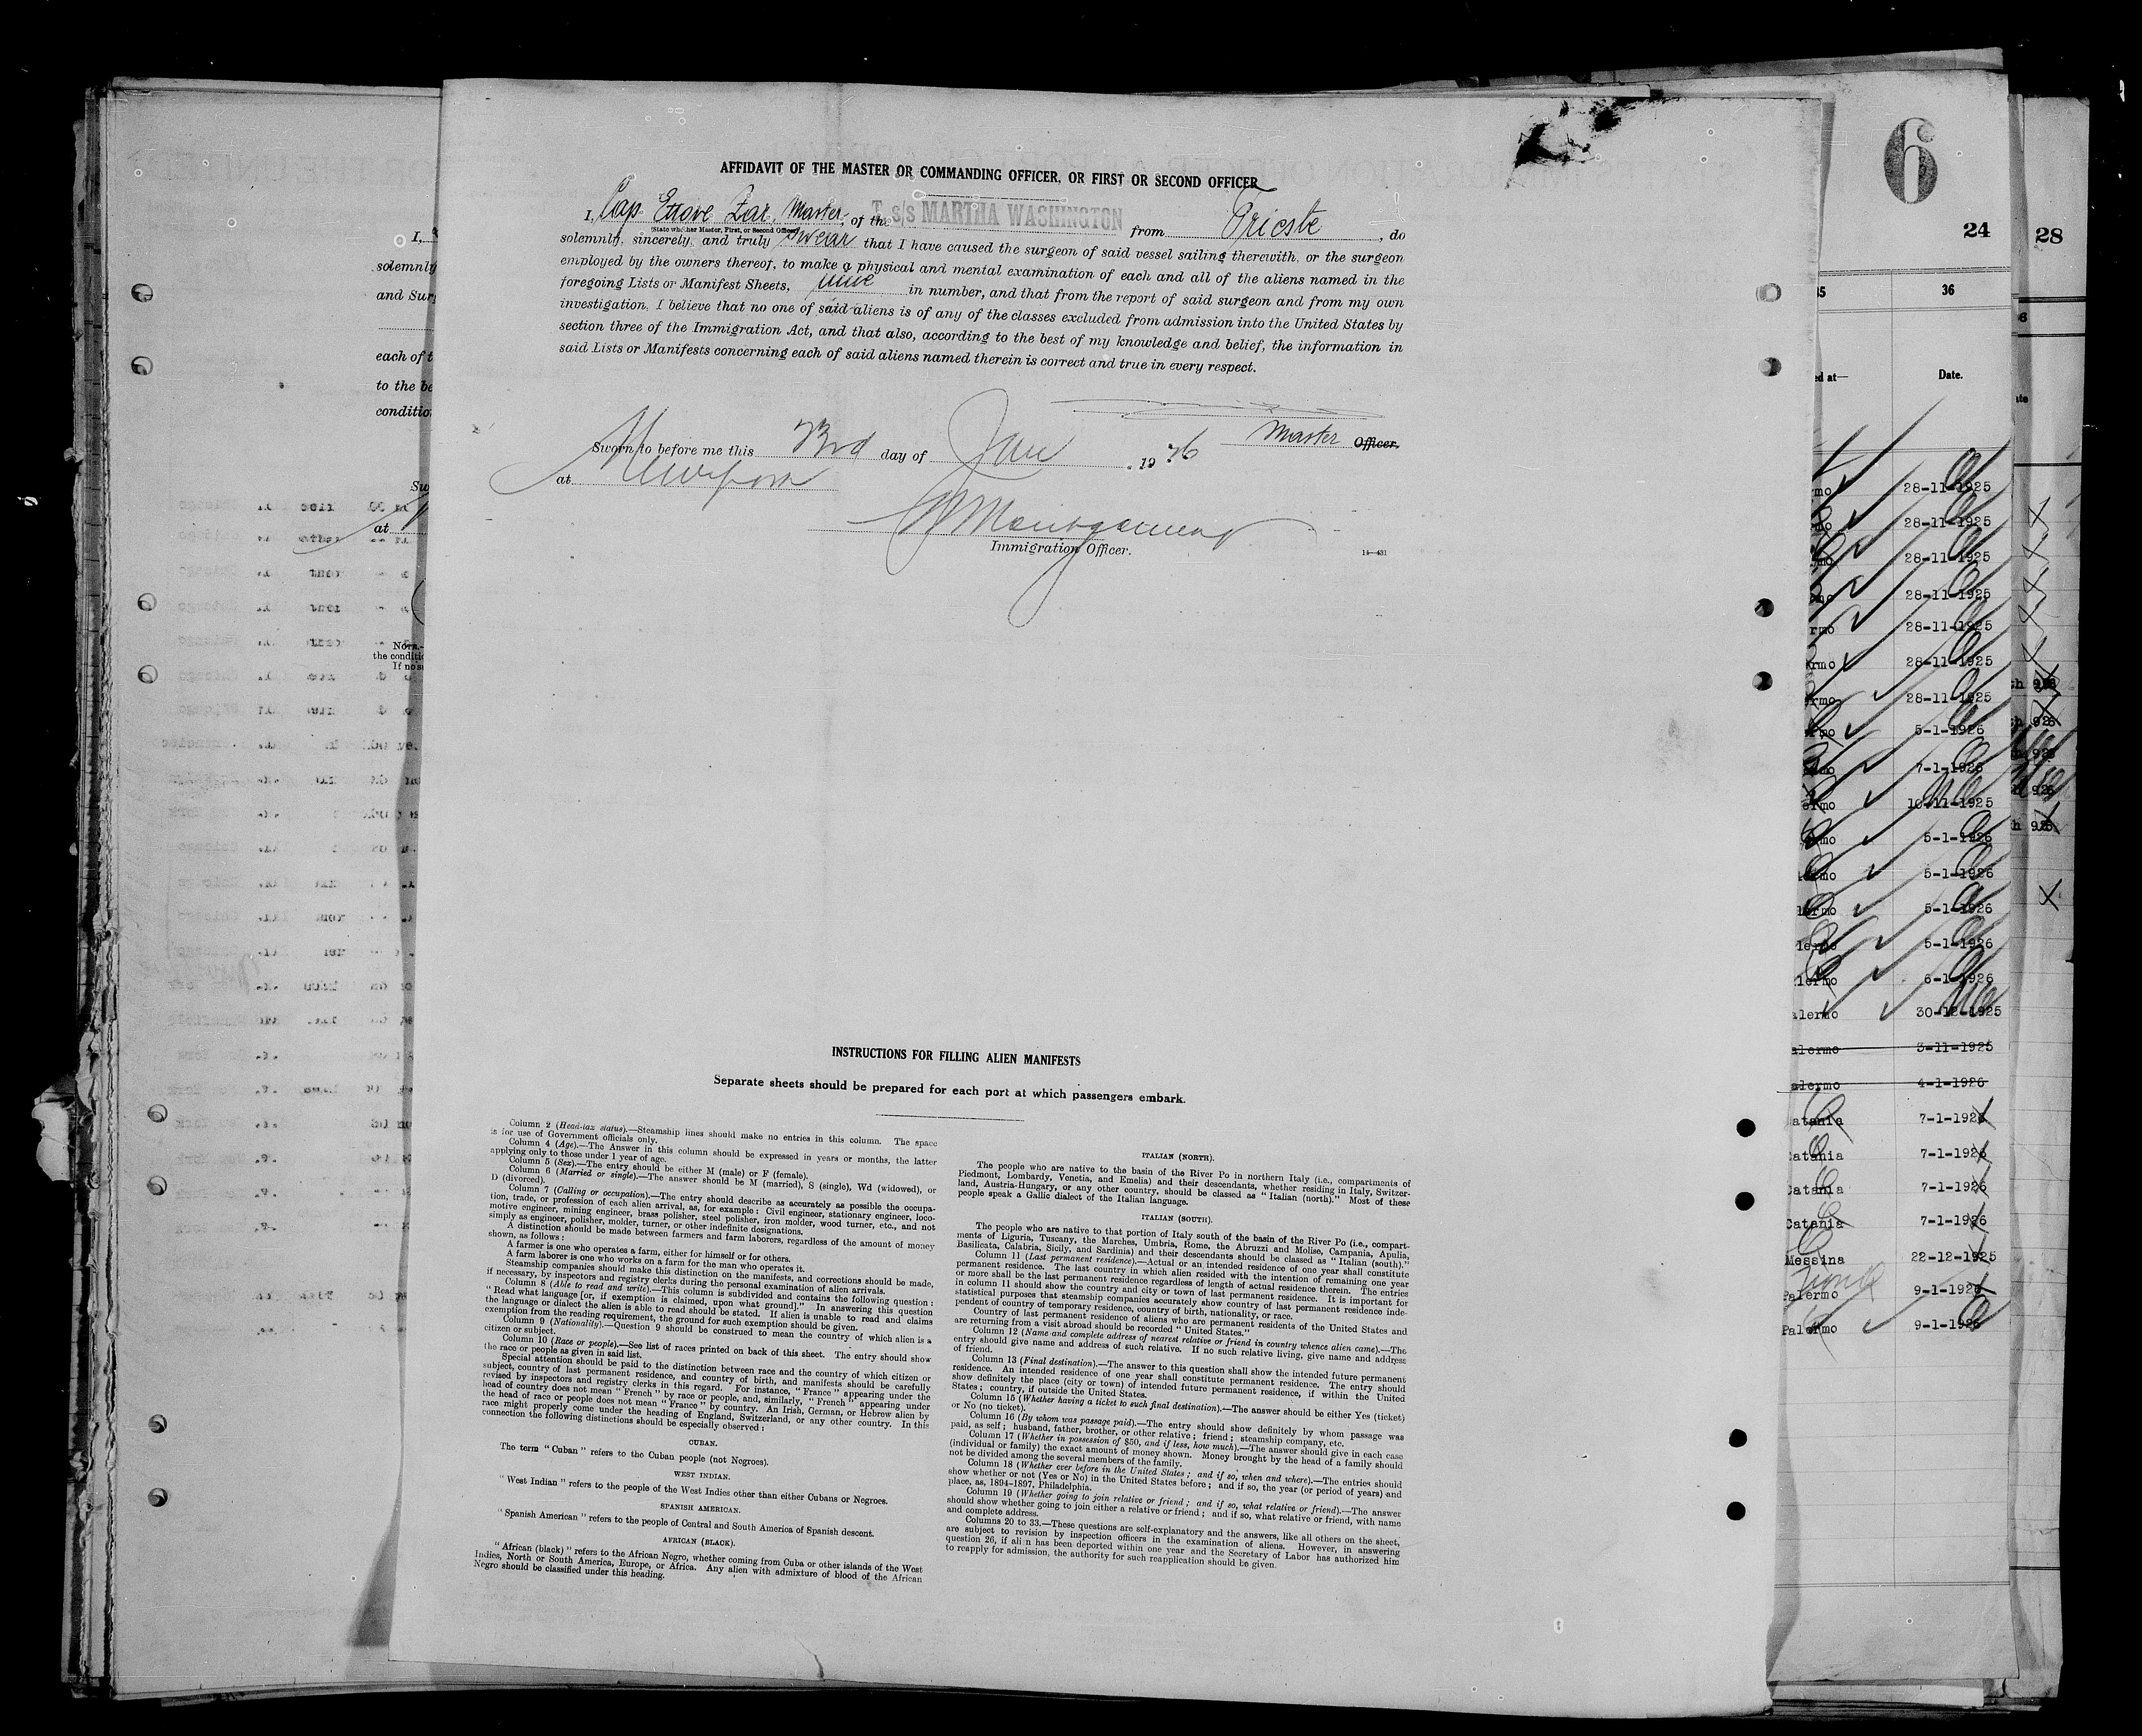 AFFIDAVIT OF THE MASTER OR COMMANDING OFFICER, OR FIRST OR SECOND OFFICER
I, Cap. Ettore Zar, Master, of the T. s/s MARTHA WASHINGTON from Trieste, do
(State whether Master, First, or Second Officer)
solemnly, sincerely, and truly swear that I have caused the surgeon of said vessel sailing therewith, or the surgeon
employed by the owners thereof, to make a physical and mental examination of each and all of the aliens named in the
foregoing Lists or Manifest Sheets, nine in number, and that from the report of said surgeon and from my own
investigation, I believe that no one of said aliens is of any of the classes excluded from admission into the United States by
section three of the Immigration Act, and that also, according to the best of my knowledge and belief, the information in
said Lists or Manifests concerning each of said aliens named therein is correct and true in every respect.
Master Officer.
Sworn to before me this 23rd day of Jan, 1926
at New York
Montgomery
Immigration Officer.
14—431
INSTRUCTIONS FOR FILLING ALIEN MANIFESTS
Separate sheets should be prepared for each port at which passengers embark.
Column 2 (Head-tax status).—Steamship lines should make no entries in this column. The space
is for use of Government officials only.
Column 4 (Age).—The Answer in this column should be expressed in years or months, the latter
applying only to those under 1 year of age.
Column 5 (Sex).—The entry should be either M (male) or F (female).
Column 6 (Married or single).—The answer should be M (married), S (single), Wd (widowed), or
D (divorced).
Column 7 (Calling or occupation).—The entry should describe as accurately as possible the occupa-
tion, trade, or profession of each alien arrival, as, for example: Civil engineer, stationary engineer, loco-
motive engineer, mining engineer, brass polisher, steel polisher, iron molder, wood turner, etc., and not
simply as engineer, polisher, molder, turner, or other indefinite designations.
A distinction should be made between farmers and farm laborers, regardless of the amount of money
shown, as follows:
A farmer is one who operates a farm, either for himself or for others.
A farm laborer is one who works on a farm for the man who operates it.
Steamship companies should make this distinction on the manifests, and corrections should be made,
if necessary, by inspectors and registry clerks during the personal examination of alien arrivals.
Column 8 (Able to read and write).—This column is subdivided and contains the following question:
"Read what language [or, if exemption is claimed, upon what ground]." In answering this question
the language or dialect the alien is able to read should be stated. If alien is unable to read and claims
exemption from the reading requirement, the ground for such exemption should be given.
Column 9 (Nationality).—Question 9 should be construed to mean the country of which alien is a
citizen or subject.
Column 10 (Race or people).—See list of races printed on back of this sheet. The entry should show
the race or people as given in said list.
Special attention should be paid to the distinction between race and the country of which citizen or
subject, country of last permanent residence, and country of birth, and manifests should be carefully
revised by inspectors and registry clerks in this regard. For instance, "France" appearing under the
head of country does not mean "French" by race or people, and, similarly, "French" appearing under
the head of race or people does not mean "France" by country. An Irish, German, or Hebrew alien by
race might properly come under the heading of England, Switzerland, or any other country. In this
connection the following distinctions should be especially observed:
CUBAN.
The term "Cuban" refers to the Cuban people (not Negroes).
WEST INDIAN.
"West Indian" refers to the people of the West Indies other than either Cubans or Negroes.
SPANISH AMERICAN.
"Spanish American" refers to the people of Central and South America of Spanish descent.
AFRICAN (BLACK).
"African (black)" refers to the African Negro, whether coming from Cuba or other islands of the West
Indies, North or South America, Europe, or Africa. Any alien with admixture of blood of the African
Negro should be classified under this heading.
ITALIAN (NORTH).
The people who are native to the basin of the River Po in northern Italy (i.e., compartments of
Piedmont, Lombardy, Venetia, and Emelia) and their descendants, whether residing in Italy, Switzer-
land, Austria-Hungary, or any other country, should be classed as "Italian (north)." Most of these
people speak a Gallic dialect of the Italian language.
ITALIAN (SOUTH).
The people who are native to that portion of Italy south of the basin of the River Po (i.e., compart-
ments of Liguria, Tuscany, the Marches, Umbria, Rome, the Abruzzi and Molise, Campania, Apulia,
Basilicata, Calabria, Sicily, and Sardinia) and their descendants should be classed as "Italian (south)."
Column 11 (Last permanent residence).—Actual or an intended residence of one year shall constitute
permanent residence. The last country in which alien resided with the intention of remaining one year
or more shall be the last permanent residence regardless of length of actual residence therein. The entries
in column 11 should show the country and city or town of last permanent residence. It is important for
statistical purposes that steamship companies accurately show country of last permanent residence inde-
pendent of country of temporary residence, country of birth, nationality, or race.
Country of last permanent residence of aliens who are permanent residents of the United States and
are returning from a visit abroad should be recorded "United States."
Column 12 (Name and complete address of nearest relative or friend in country whence alien came).—The
entry should give name and address of such relative. If no such relative living, give name and address
of friend.
Column 13 (Final destination).—The answer to this question shall show the intended future permanent
residence. An intended residence of one year shall constitute permanent residence. The entry should
show definitely the place (city or town) of intended future permanent residence, if within the United
States; country, if outside the United States.
Column 15 (Whether having a ticket to such final destination).—The answer should be either Yes (ticket)
or No (no ticket).
Column 16 (By whom was passage paid).—The entry should show definitely by whom passage was
paid, as self; husband, father, brother, or other relative; friend; steamship company, etc.
Column 17 (Whether in possession of $50, and if less, how much).—The answer should give in each case
(individual or family) the exact amount of money shown. Money brought by the head of a family should
not be divided among the several members of the family.
Column 18 (Whether ever before in the United States; and if so, when and where).—The entries should
show whether or not (Yes or No) in the United States before; and if so, the year (or period of years) and
place, as, 1894-1897, Philadelphia.
Column 19 (Whether going to join relative or friend; and if so, what relative or friend).—The answer
should show whether going to join either a relative or friend; and if so, what relative or friend, with name
and complete address.
Columns 20 to 33.—These questions are self-explanatory and the answers, like all others on the sheet,
are subject to revision by inspection officers in the examination of aliens. However, in answering
question 26, if alien has been deported within one year and the Secretary of Labor has authorized him
to reapply for admission, the authority for such reapplication should be given.
6
24
28
36
Date.
28-11-1925
28-11-1925
28-11-1925
28-11-1925
28-11-1925
28-11-1925
28-11-1925
5-1-1926
7-1-1926
10-11-1925
5-1-1926
5-1-1926
5-1-1926
5-1-1926
6-1-1926
30-12-1925
3-11-1925
4-1-1926
Catania 7-1-1926
Catania 7-1-1926
Catania 7-1-1926
Catania 7-1-1926
Messina 22-12-1925
Palermo 9-1-1926
Palermo 9-1-1926